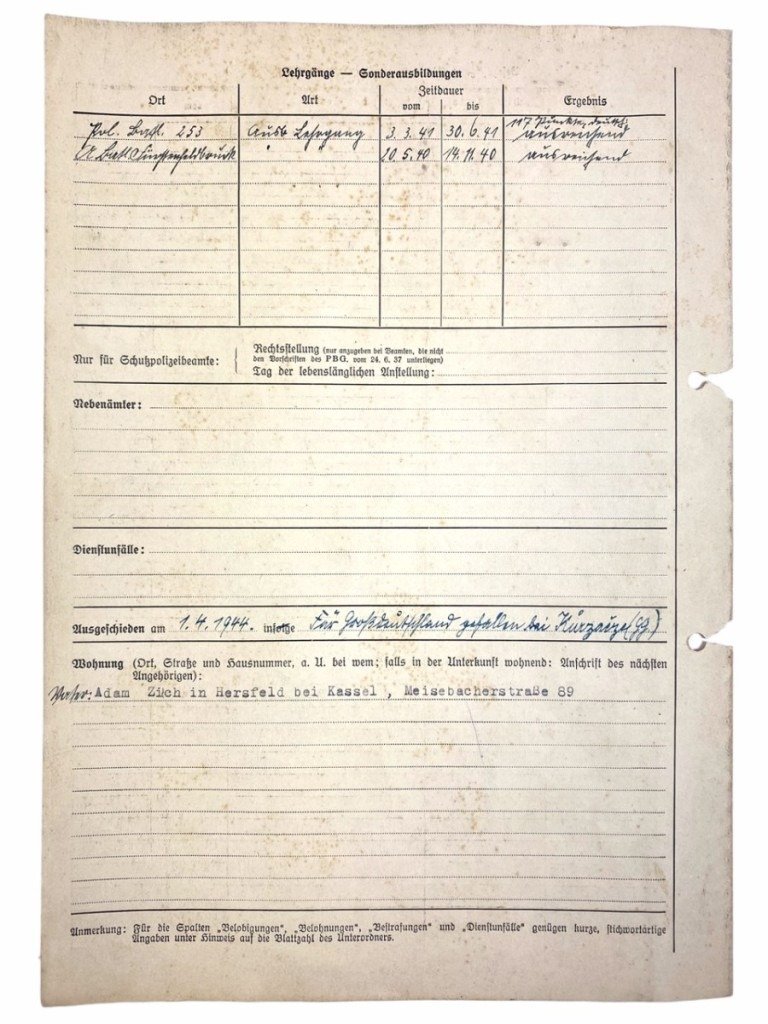 Lehrgänge — Sonderausbildungen
Ort Art Zeitdauer Ergebnis
vom bis
Pol. Batl. 253 Ausb Lehrgang 3. 3. 41 30. 6. 41 117 Punkte, deutsch: ausreichend
A Batl. Fürstenfeldbruck " " 20. 5. 40 14. 11. 40 ausreichend
Nur für Schutzpolizeibeamte:
Rechtsstellung (nur anzugeben bei Beamten, die nicht
den Vorschriften des PBG. vom 24. 6. 37 unterliegen)
Tag der lebenslänglichen Anstellung:
Nebenämter:
Dienstunfälle:
Ausgeschieden am 1. 4. 1944. infolge Für Großdeutschland gefallen bei
Wohnung (Ort, Straße und Hausnummer, a. U. bei wem; falls in der Unterkunft wohnend: Anschrift des nächsten
Angehörigen):
Vater: Adam Zilch in Hersfeld bei Kassel , Meisebacherstraße 89
Anmerkung: Für die Spalten „Belobigungen“, „Belohnungen“, „Bestrafungen“ und „Dienstunfälle“ genügen kurze, stichwortartige
Angaben unter Hinweis auf die Blattzahl des Unterordners.